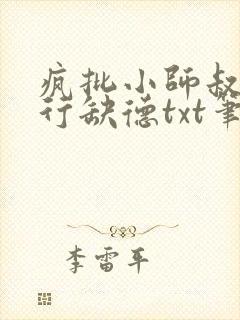 疯批小师叔
行缺德txt笔
李雷平